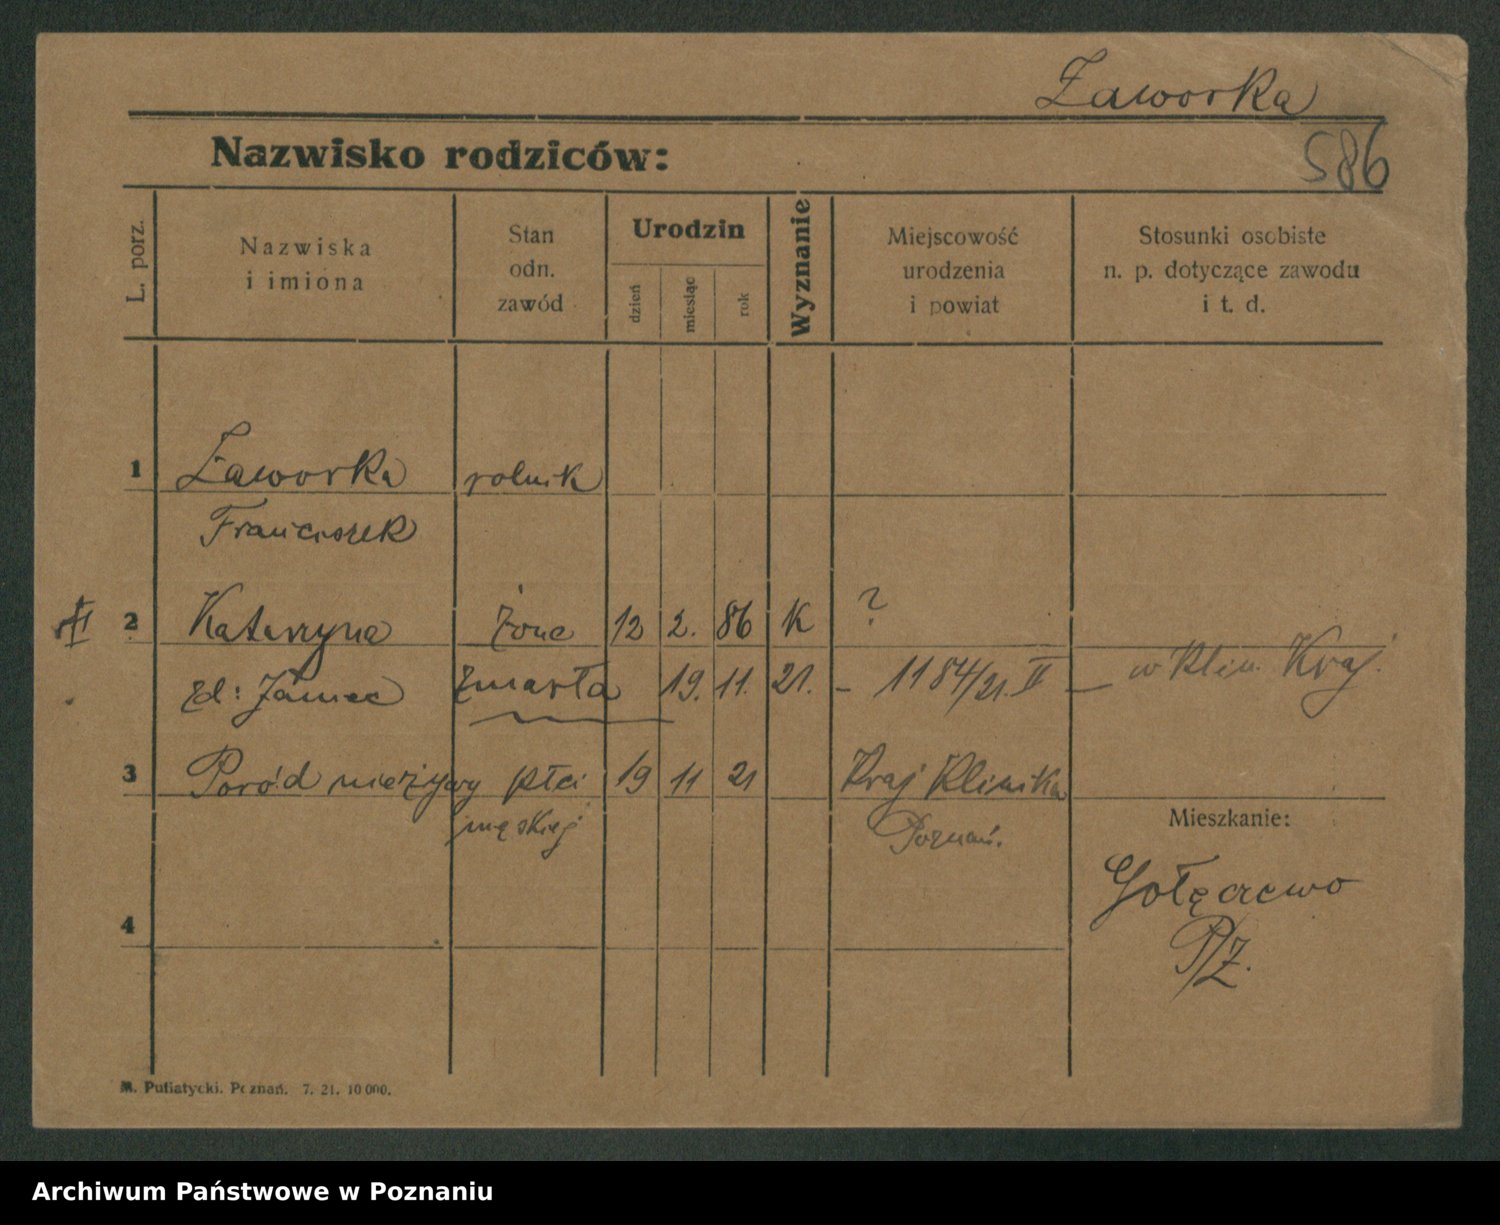 Zaworka
586
Nazwisko rodziców:
L. porz.
Nazwiska
i imiona
Stan
odn.
zawód
Urodzin
dzień
miesiąc
rok
Wyznanie
Miejscowość
urodzenia
i powiat
Stosunki osobiste
n. p. dotyczące zawodu
i t. d.
1 Zaworka rolnik
Franciszek
2 Katarzyna żona 12 2. 86 K ?
zd: Janiec zmarła 19. 11. 21. – 1184/21. II – w Klin. Kraj.
3 Poród nieżywy płci 19 11 21 Kraj Klinika
męskiej Poznań.
Mieszkanie:
Gołęczewo
P/Z.
4
M. Putiatycki. Poznań. 7. 21. 10 000.
Archiwum Państwowe w Poznaniu